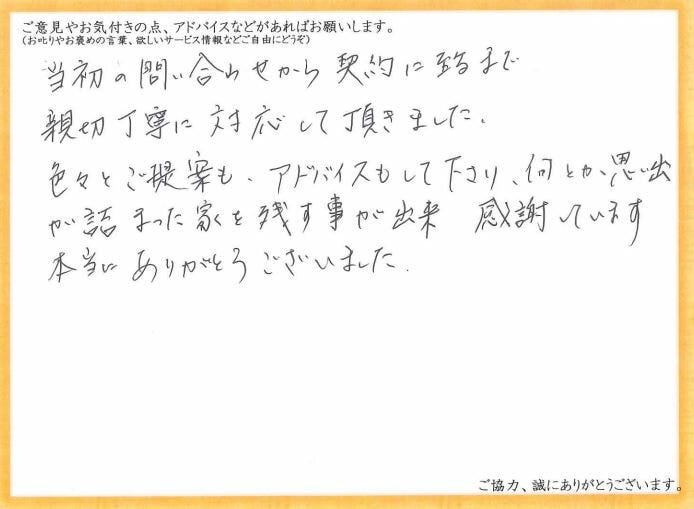 ご意見やお気付きの点、アドバイスなどがあればお願いします。
(お叱りやお褒めの言葉、欲しいサービス情報などご自由にどうぞ)
当初の問い合わせから契約に至るまで
親切丁寧に対応して頂きました。
色々とご提案も、アドバイスもして下さり、何とか思い出
が詰まった家を残す事が出来 感謝しています
本当にありがとうございました.
ご協力、誠にありがとうございます。